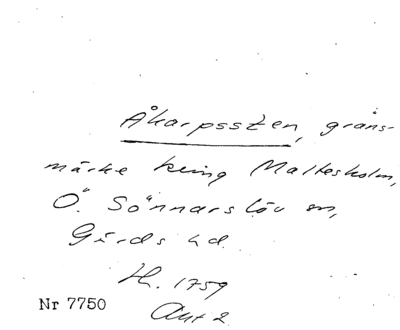 Åkarpssten, gräns-
märke kring Maltesholm,
Ö. Sönnarslöv sn,
Gärds hd.
H. 1759
Akt 2
Nr 7750